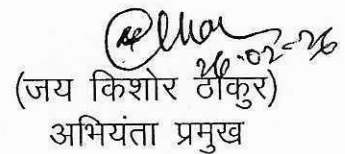 26.02-26
(जय किशोर ठाकुर)
अभियंता प्रमुख